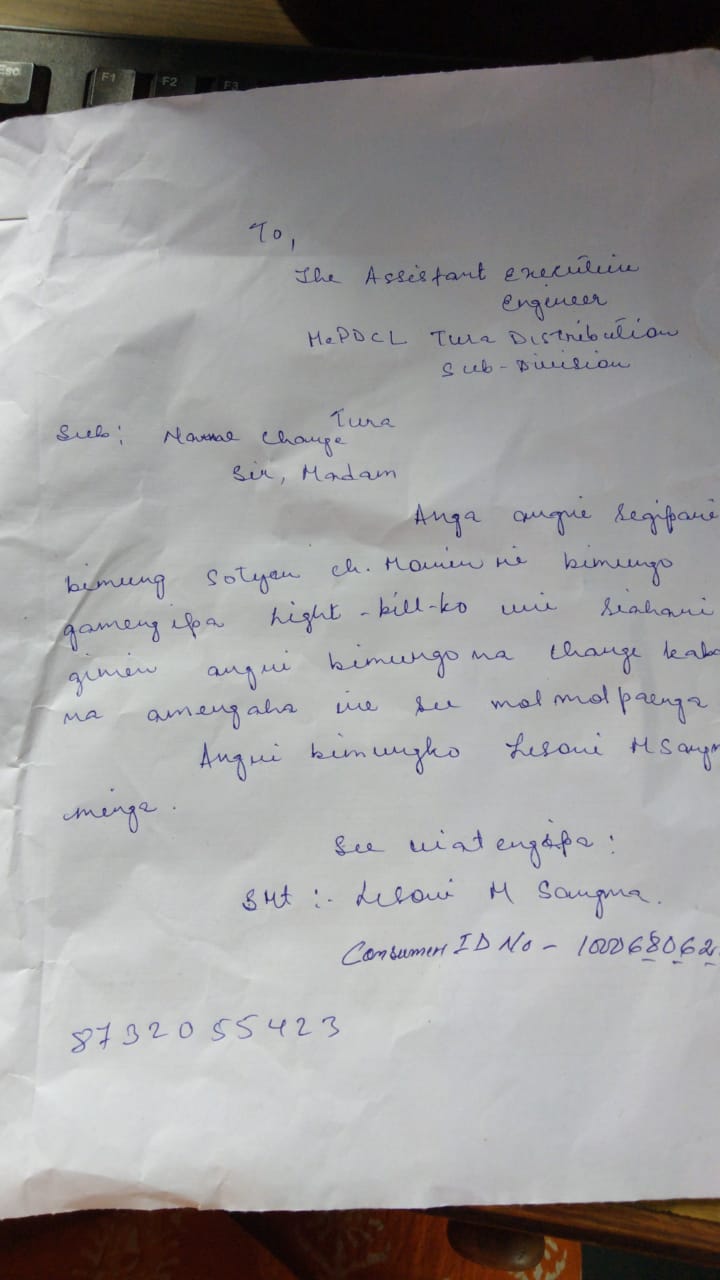 Esc F1 F2 F3
To,
The Assistant Executive
Engineer
MePDCL Tura Distribution
Sub-Division
Tura
Sub: Name Change
Sir, Madam
Anga angni segipani
bimung Sotyen ch. Momin ni bimungo
gamengipa Light-bill-ko uni siahani
gimin angni bimungo na change kaka
na amengaha ine see molmolpaenga
Angni bimungko Lesoni M Sangm
menga.
See uiatengipa:
SMt :- Lesoni M Sangma.
Consumer ID No - 100068062
8732055423